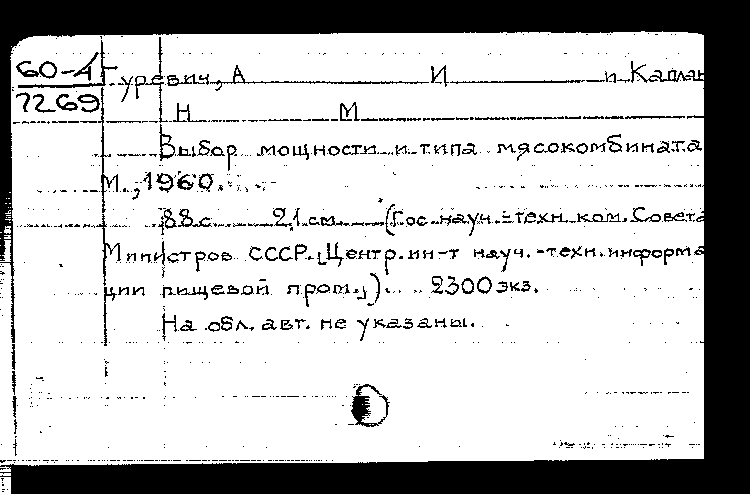 60-4 Гуревич, А И и Каплан
7269
Н М
Выбор мощности и типа мясокомбината
М., 1960.
88 с 21 см (Гос. науч.-техн. ком. Совета
Министров СССР. [Центр. ин-т науч.-техн. информа
ции пищевой пром.]). 2300 экз.
На обл. авт. не указаны.